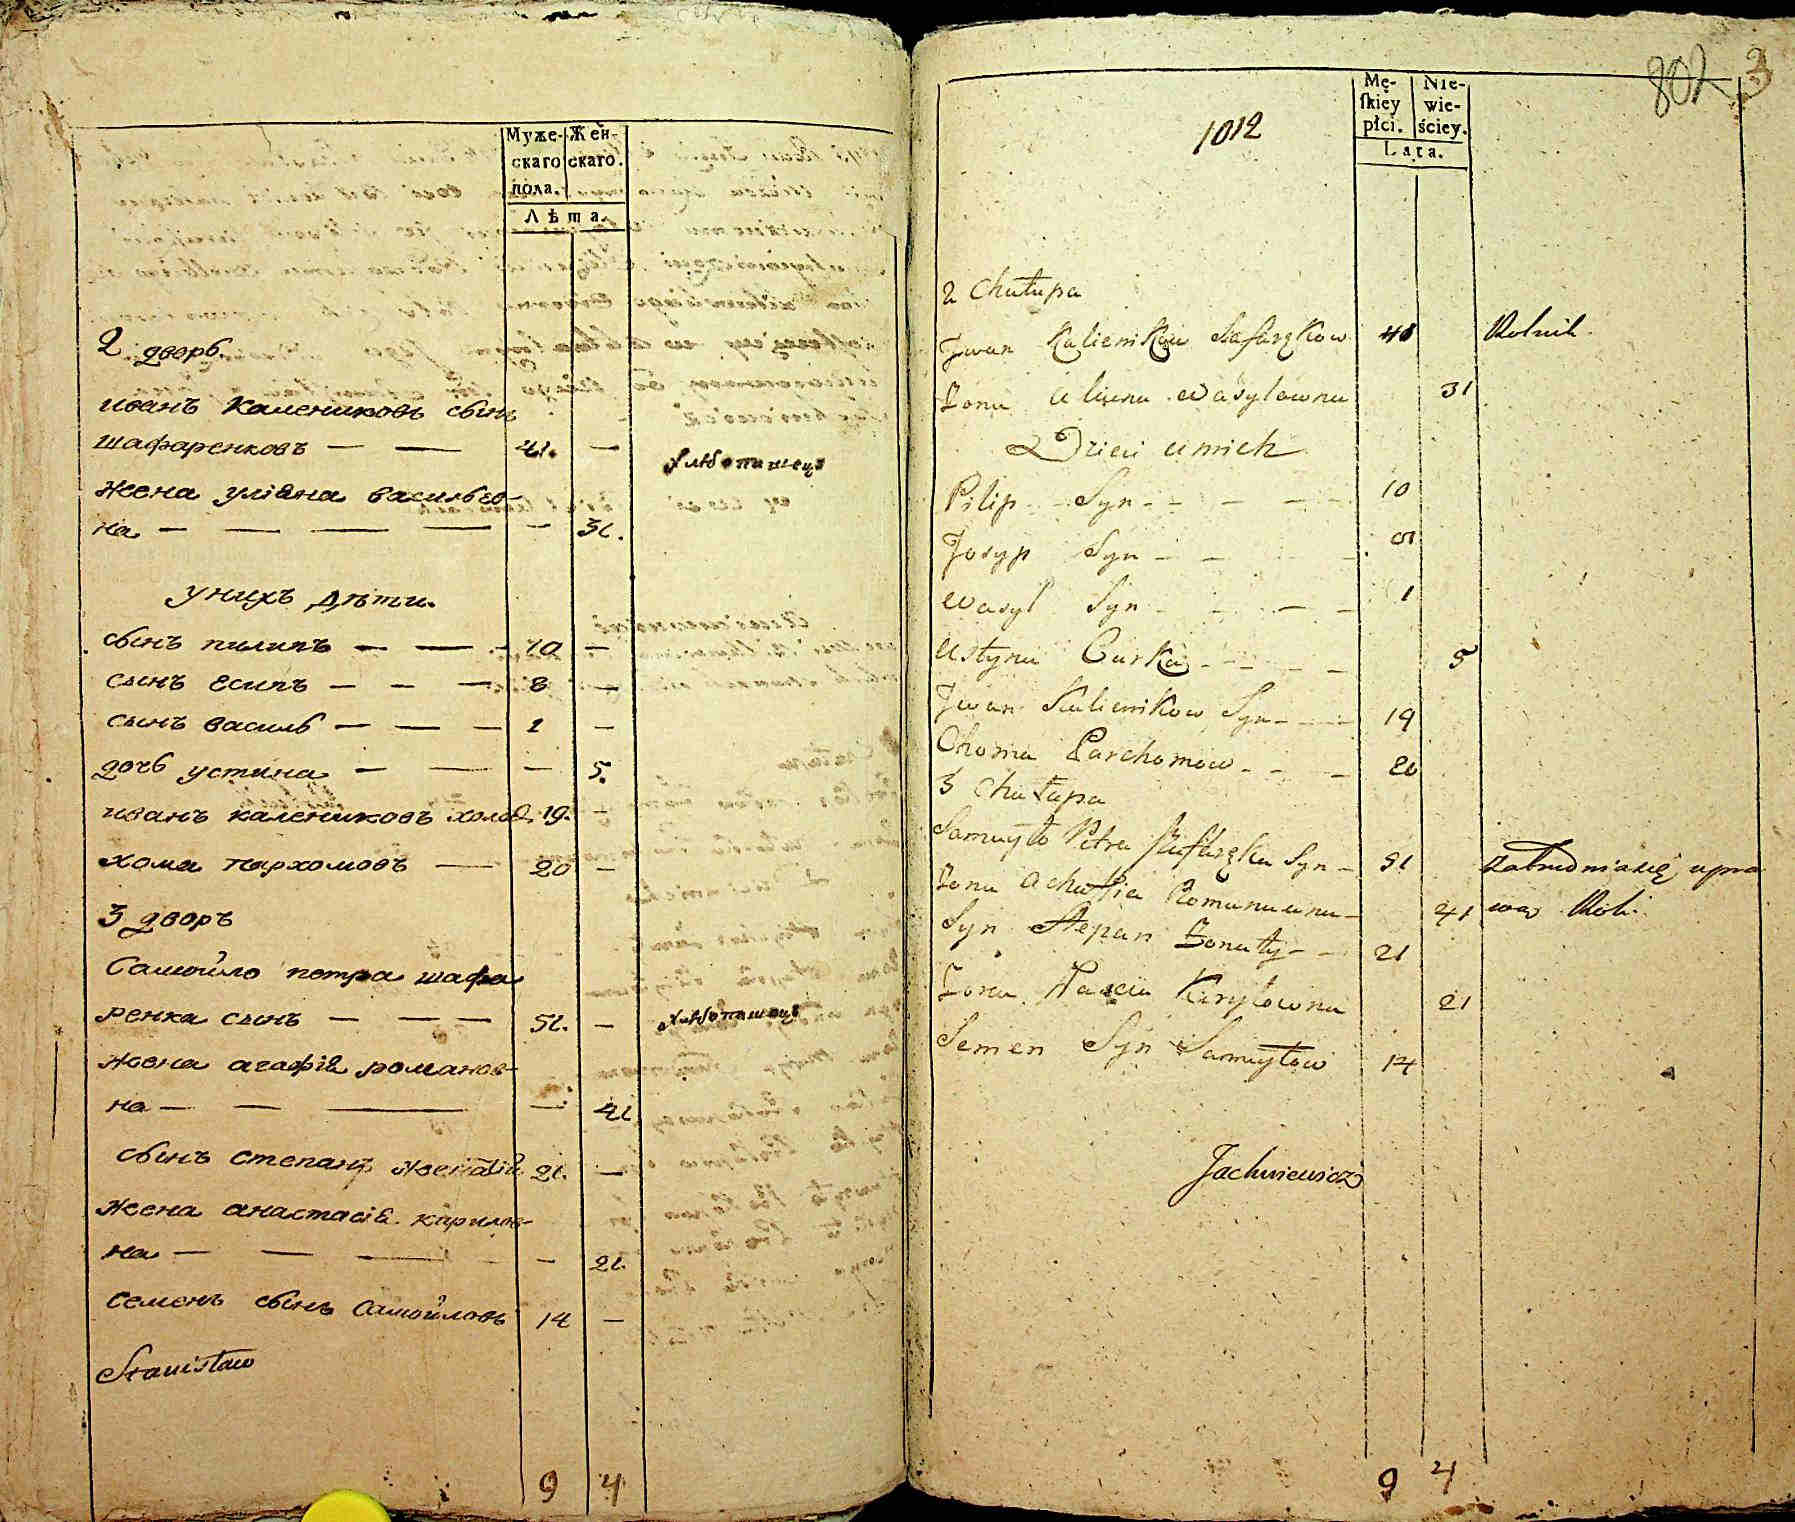 Муже-
скаго
пола.
Жен-
скаго.
Лѣта.
2 дворъ.
иванъ Калениковъ сынъ
шафаренковъ — — 41. —
жена улiяна васильев-
на — — — — — 31.
унихъ дѣти.
сынъ пилипъ — — - 10 —
сынъ есипъ — - — 8 —
сынъ василь — — — 1 —
дочь устина — — — 5.
иванъ калениковъ холос. 19. -
хома пархомовъ — 20 -
3 дворъ
Самойло петра шафа
ренка сынъ — — — 51. —
жена агафiя романов-
на — — — — 41
сынъ степанъ женатiй 21. —
жена анастасiя кирилов-
на — — — — 21.
семенъ сынъ Самойловъ 14 —
Stanisław
9 4
хлѣбопашецъ
хлѣбопашецъ
802 3
1012
Mę-
skiey
płci.
Nie-
wie-
ściey.
Lata.
2 Chałupa
Jwan Kalienikow Szafarękow 41 Rolnik.
Żona Uliana Wasylowna 31
Dzieci u nich
Pilip - Syn - - - - - 10
Josyp Syn - - - 8
Wasyl Syn - - - - 1
Ustyna Curka - - - - - 5
Jwan Kalienikow Syn - - - 19
Choma Parchomow - - - 20
3 Chałupa
Samuyło Petra Szafaręka Syn - 51 Zatrudnia się upra
Żona Achafia Romanowna - 41 wą Roli.
Syn Stepan Żonaty - - 21
Żona Nascia Kiryłowna 21
Semen Syn Samuyłow 14
Jachniewicz
9 4